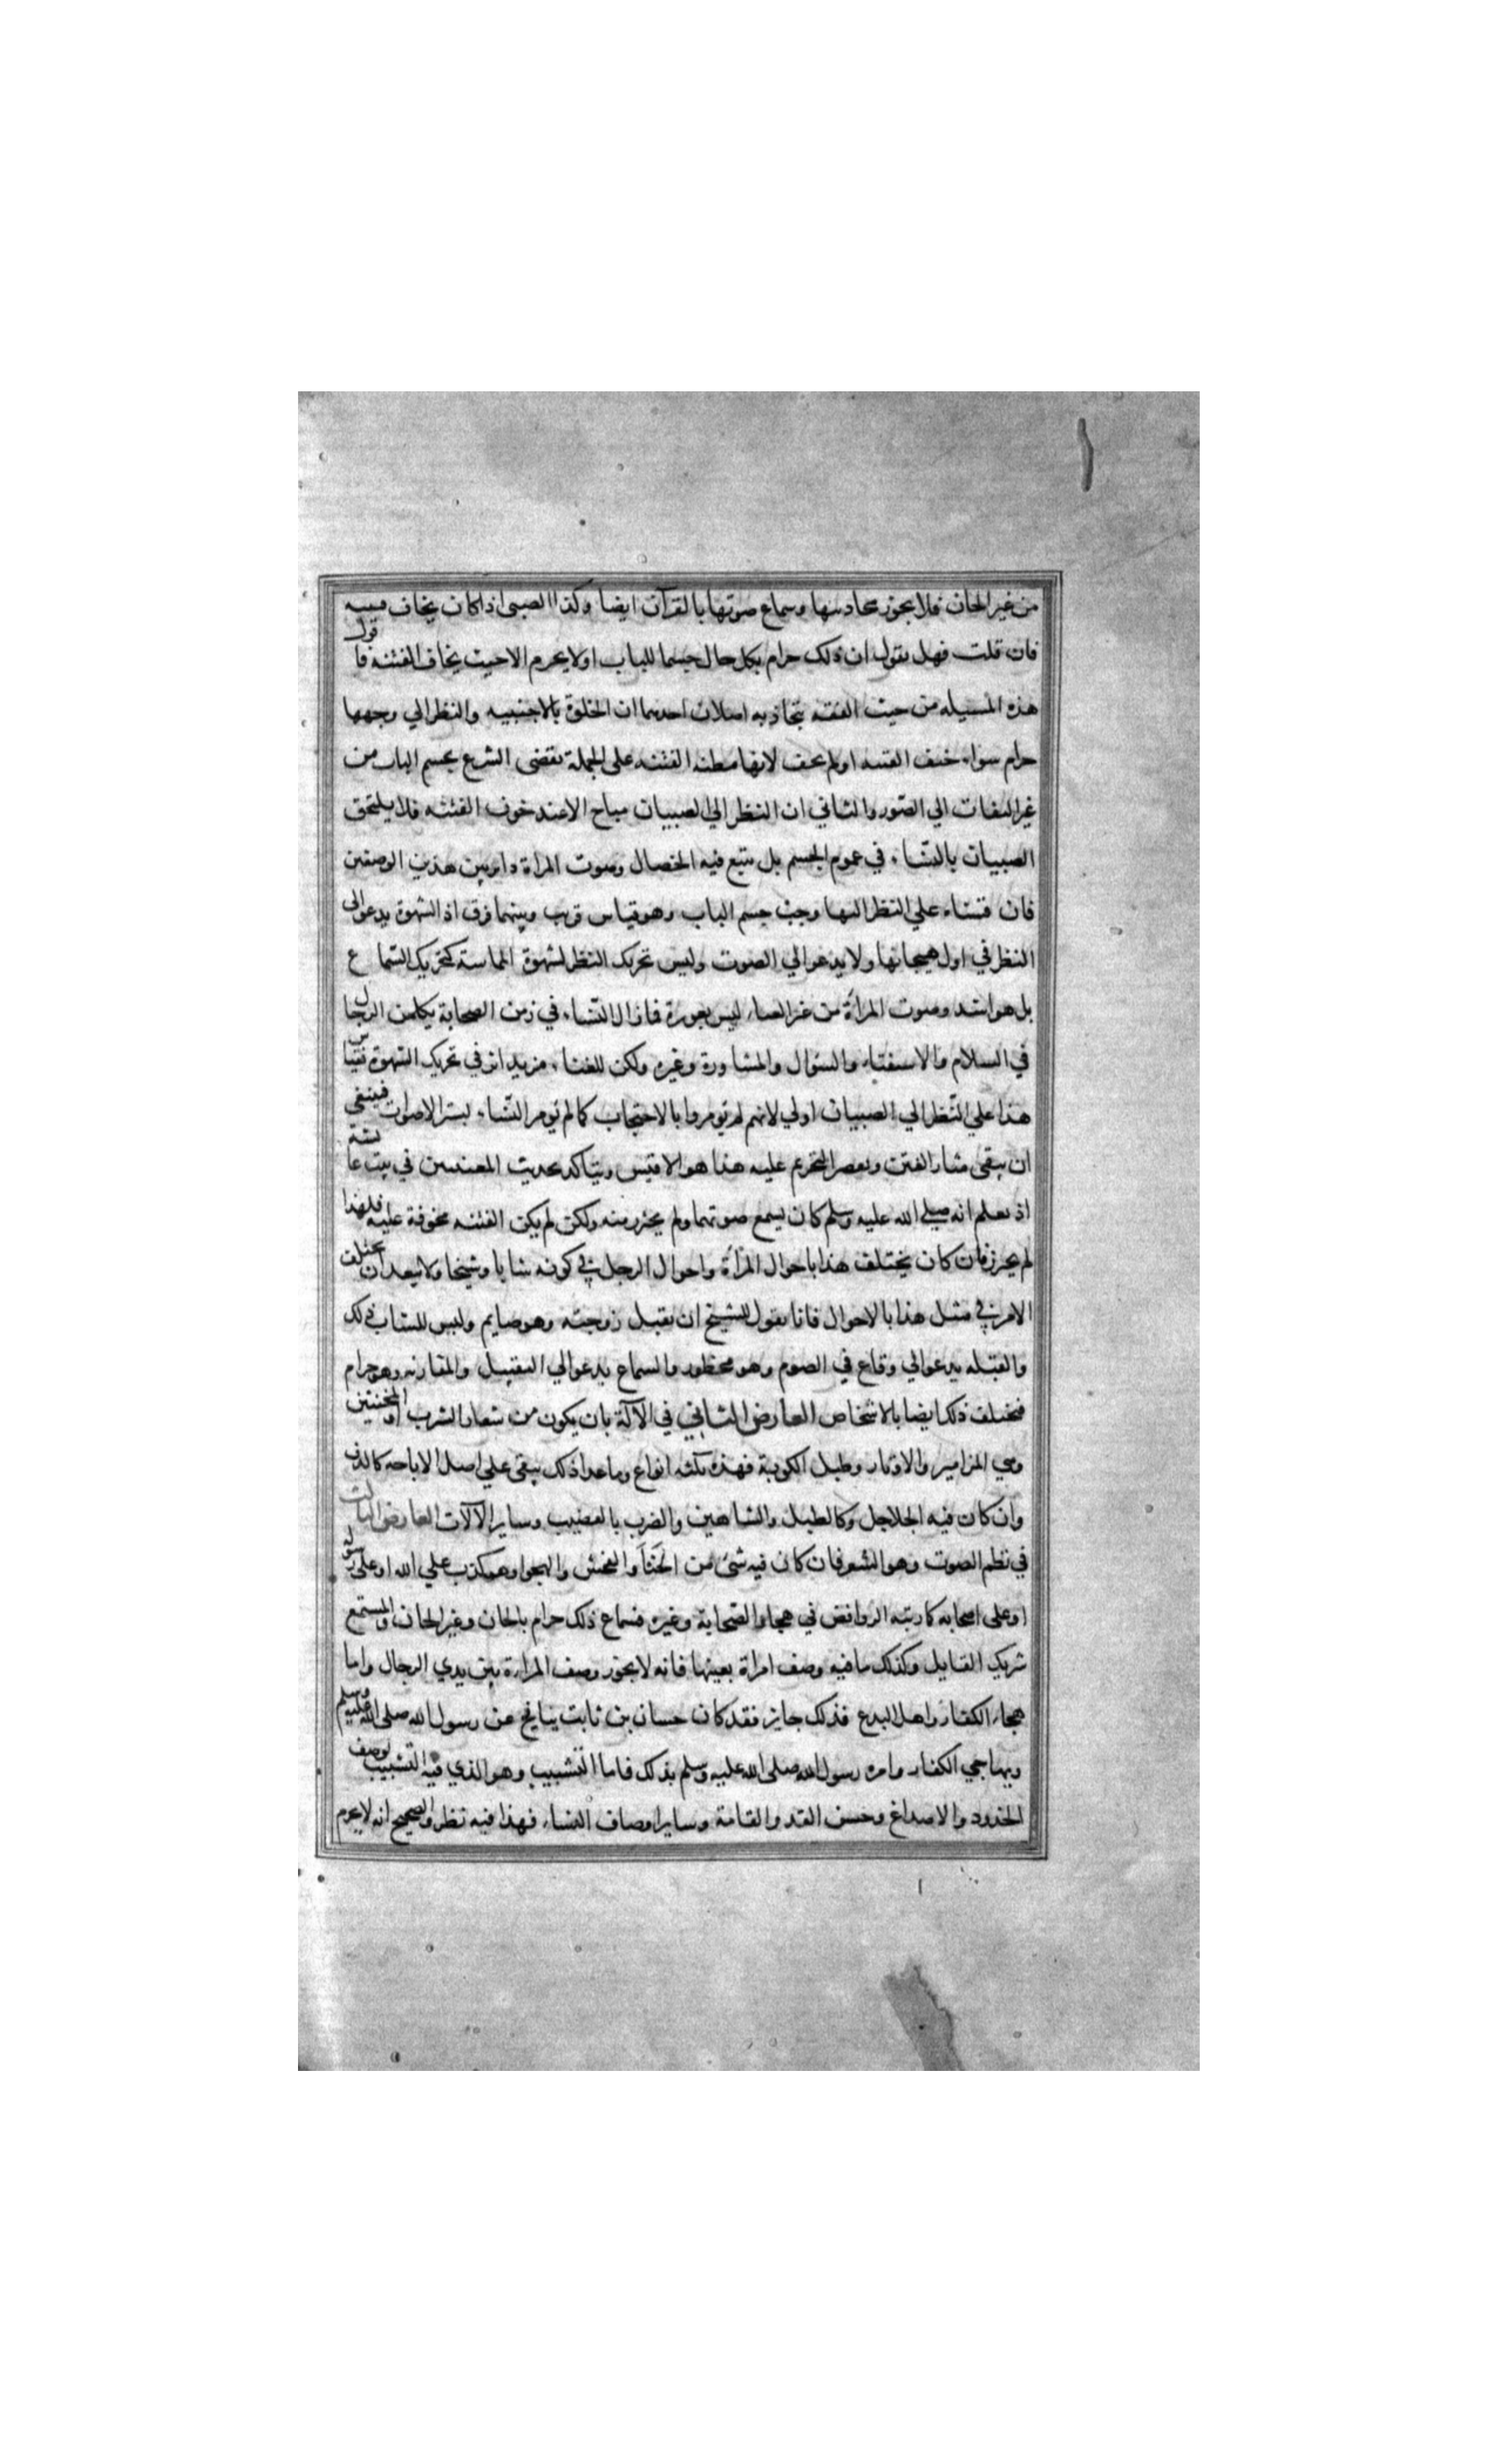 من غير الحان فلا يجوز محادثتها وسماع صوتها بالقرآن ايضا وكذا الصبي اذا كان يخاف فتنته
فان قلت فهل تقول ان ذلك حرام بكل حال حسما للباب او لا يحرم الا حيث يخاف الفتنه فاقول
هذه المسيله من حيث الفقه يتجاذبه اصلان احدهما ان الخلوة بالاجنبيه والنظر الي وجهها
حرام سواء خيف الفتنه اولم يخف لانها مظنه الفتنه على الجملة فقضى الشرع بحسم الباب من
غير التفات الي الصور والثاني ان النظر الي الصبيان مباح الا عند خوف الفتنه فلا يلتحق
الصبيان بالنساء في عموم الحسم بل يتبع فيه الخصال وصوت المراة داير بين هذين الوصفين
فان قسناه علي النظر اليها وجب حسم الباب وهو قياس قريب وبينهما فرق اذ الشهوة يدعوالى
النظر في اول هيجانها ولا يدعوالي الصوت وليس تحريك النظر لشهوة المماسة كتحريك السماع
بل هو اشد وصوت المرأة من غير الغناء ليس بعورة فما زال النساء في زمن الصحابة يكلمن الرجال
في السلام والاستفتاء والسؤال والمشاورة وغيره ولكن للغناء مزيد اثر في تحريك الشهوة فقياس
هذا علي النظر الي الصبيان اولي لانهم لم يومروا بالاحتجاب كما لم تومر النساء بستر الاصوات فينبغي
ان يتقى مثار الفتن ويقصر التحريم عليه هذا هو الاقيس ويتاكد بحديث المغنيتين في بيت عايشة
اذ نعلم انه صلى الله عليه وسلم كان يسمع صوتهما ولم يحترز منه ولكن لم يكن الفتنه مخوفة عليه فلهذا
لم يحترز فان كان يختلف هذا باحوال المرأة واحوال الرجل في كونه شابا وشيخا ولا يبعد ان يختلف
الامر في مثل هذا بالاحوال فانا نقول للشيخ ان يقبل زوجته وهو صايم وليس للشاب ذلك
والقبله يدعوالي وقاع في الصوم وهو محظور والسماع يدعوالي التقبيل والمقاربه وهو حرام
فيختلف ذلك ايضا بالاشخاص العارض الثاني في الآلة بان يكون من شعار الشرب او المخنثين
وهي المزامير والاوتار وطبل الكوبة فهذه ثلثه انواع وما عدا ذلك يبقى علي اصل الاباحه كالدف
وان كان فيه الجلاجل وكالطبل والشاهين والضرب بالقضيب وساير الآلات العارض الثالث
في نظم الصوت وهو الشعر فان كان فيه شئ من الخنا والفحش والهجو او هو كذب علي الله او على رسوله
او على اصحابه كما رتبه الروافض في هجاء الصحابة وغيره فسماع ذلك حرام بالحان وغير الحان والمستمع
شريك القايل وكذلك ما فيه وصف امراة بعينها فانه لا يجوز وصف المراءة بين يدي الرجال واما
هجاء الكفار واهل البدع فذلك جايز فقد كان حسان بن ثابت ينافح عن رسول الله صلى الله عليه وسلم
ويهاجي الكفار وامره رسول الله صلى الله عليه وسلم بذلك فاما التشبيب وهو الذي فيه التشبيب لوصف
الخدود والاصداغ وحسن القد والقامة وساير اوصاف النساء فهذا فيه نظر والصحيح انه لا يحرم